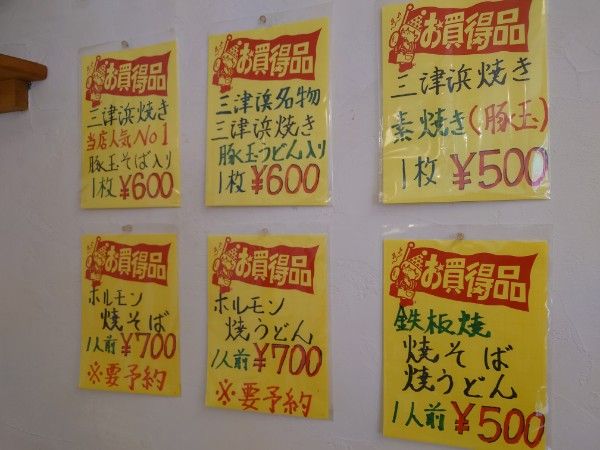 お買得品
三津浜焼き
当店人気No1
豚玉そば入り
1枚¥600
お買得品
三津浜名物
三津浜焼き
豚玉うどん入り
1枚¥600
お買得品
三津浜焼き
素焼き(豚玉)
1枚¥500
お買得品
ホルモン
焼そば
1人前¥700
※要予約
お買得品
ホルモン
焼うどん
1人前¥700
※要予約
お買得品
鉄板焼
焼そば
焼うどん
1人前¥500